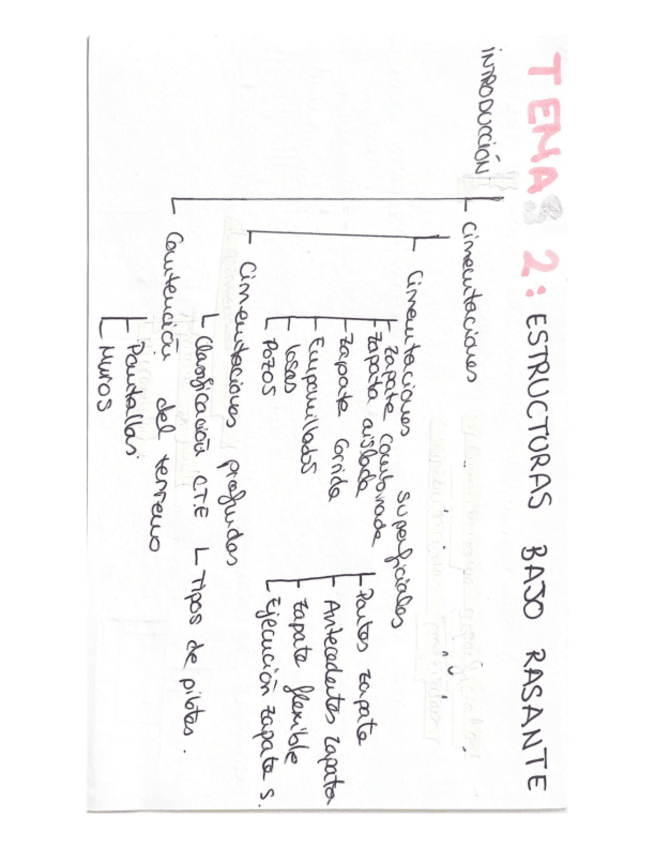 TEMA 2: ESTRUCTURAS BAJO RASANTE
INTRODUCCIÓN
Cimentaciones
Cimentaciones superficiales
Zapata combinada
Zapata aislada
Zapata corrida
Emparrillados
losas
Pozos
Partes zapata
Antecedentes zapata
Zapata flexible
Ejecución zapata s.
Cimentaciones profundas
Clasificación C.T.E
Tipos de pilotes.
Contención del terreno
Pantallas
Muros